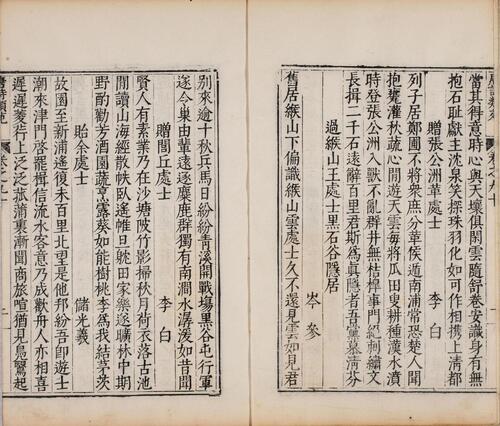 當其得意時心與天壤俱閑雲隨舒卷安識身有無
抱石恥獻玉沈泉笑探珠羽化如可作相攜上清都
贈張公洲革處士 李白
列子居鄭圃不將衆庶分革侯遁南浦常恐楚人聞
抱甕灌秋蔬心閒遊天雲每將瓜田叟耕種漢水濆
時登張公洲入獸不亂群井無桔橰事門絕刺繡文
長揖二千石遠辭百里君斯爲眞隱者吾黨慕清芬
過緱山王處士黑石谷隱居
岑參
舊居緱山下偏識緱山雲處士久不還見雲如見君
別來逾十秋兵馬日紛紛靑溪開戰場黑谷屯行軍
遂令巢由輩遠逐麋鹿群獨有南澗水潺湲如昔聞
贈閭丘處士 李白
賢人有素業乃在沙塘陂竹影掃秋月荷衣落古池
閒讀山海經散帙臥遙帷且躭田家樂遂曠林中期
野酌勸芳酒園蔬烹露葵如能樹桃李爲我結茅茨
貽余處士 儲光羲
故園至新浦遙復未百里北望是他邦紛吾卽遊士
潮來津門啓罷楫信流水客意乃成歡舟人亦相喜
遲遲菱荇上泛泛菰蒲裏漸聞商旅喧猶見鳧鷖起